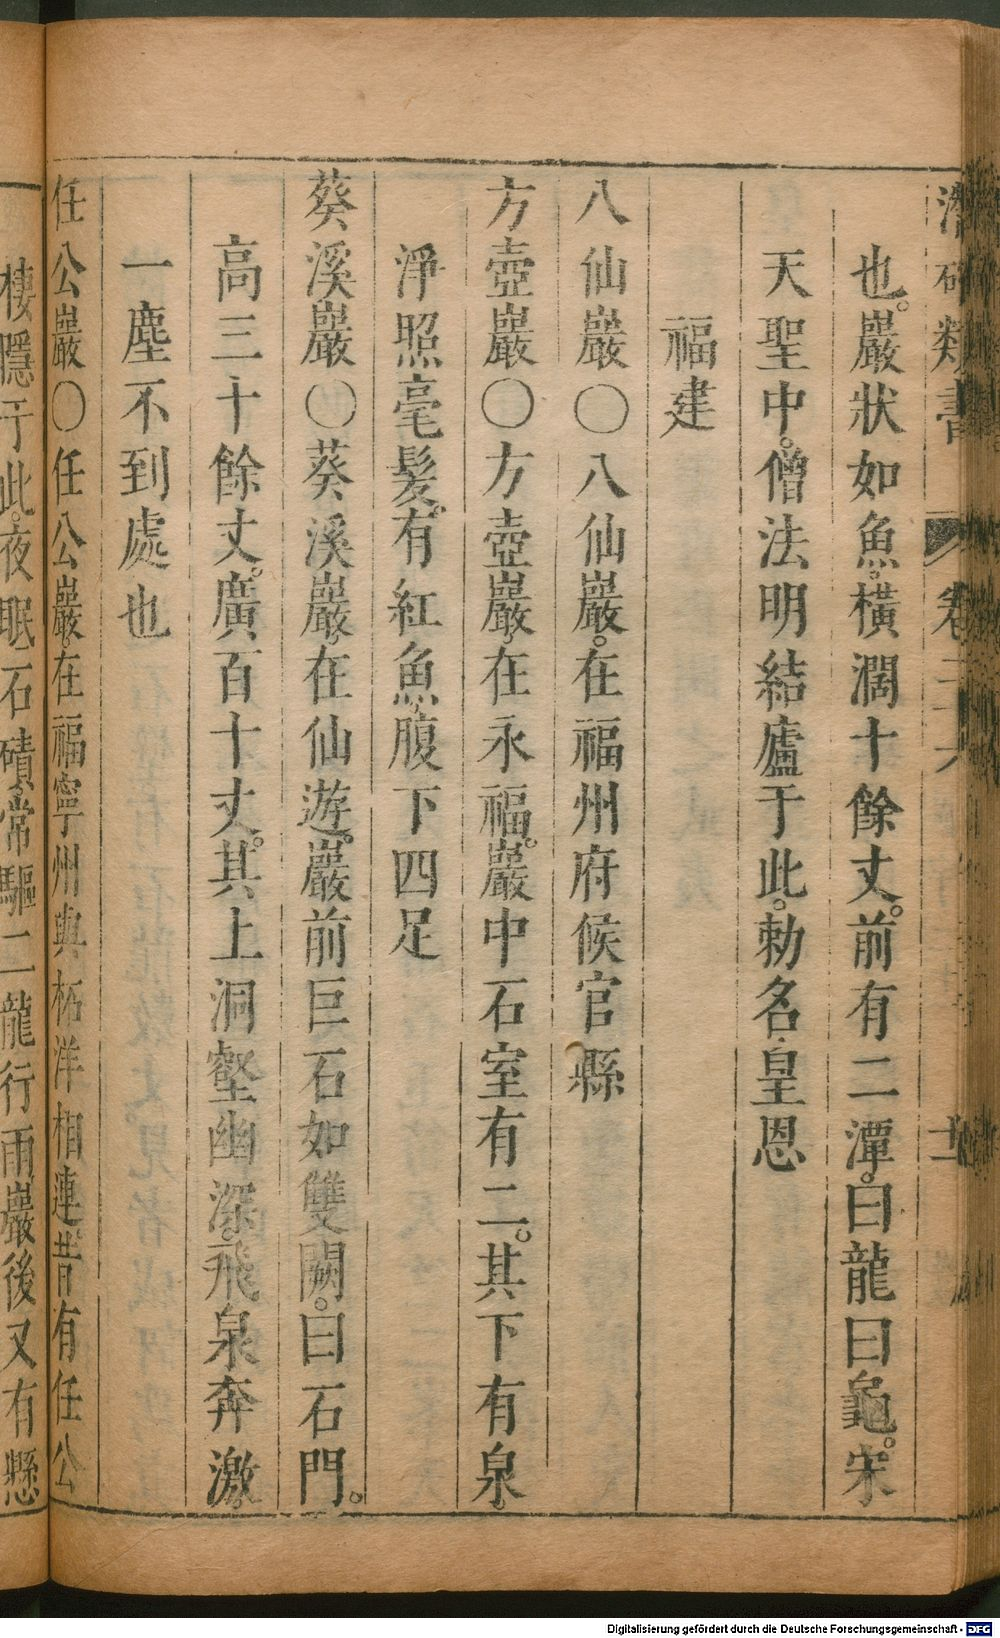 類書 卷二十六
也。巖狀如魚。橫濶十餘丈。前有二潭。曰龍曰龜。宋
天聖中。僧法明結廬于此。勅名皇恩
福建
八仙巖〇八仙巖。在福州府候官縣
方壺巖〇方壺巖。在永福。巖中石室有二。其下有泉。
淨照毫髮。有紅魚。腹下四足
葵溪巖〇葵溪巖。在仙遊。巖前巨石如雙闕。曰石門。
高三十餘丈。廣百十丈。其上洞壑幽深。飛泉奔激。
一塵不到處也
任公巖〇任公巖。在福寧州與柘洋相連。昔有任公
棲隱于此。夜眠石磧。常驅二龍行雨。巖後又有懸
Digitalisierung gefördert durch die Deutsche Forschungsgemeinschaft - DFG